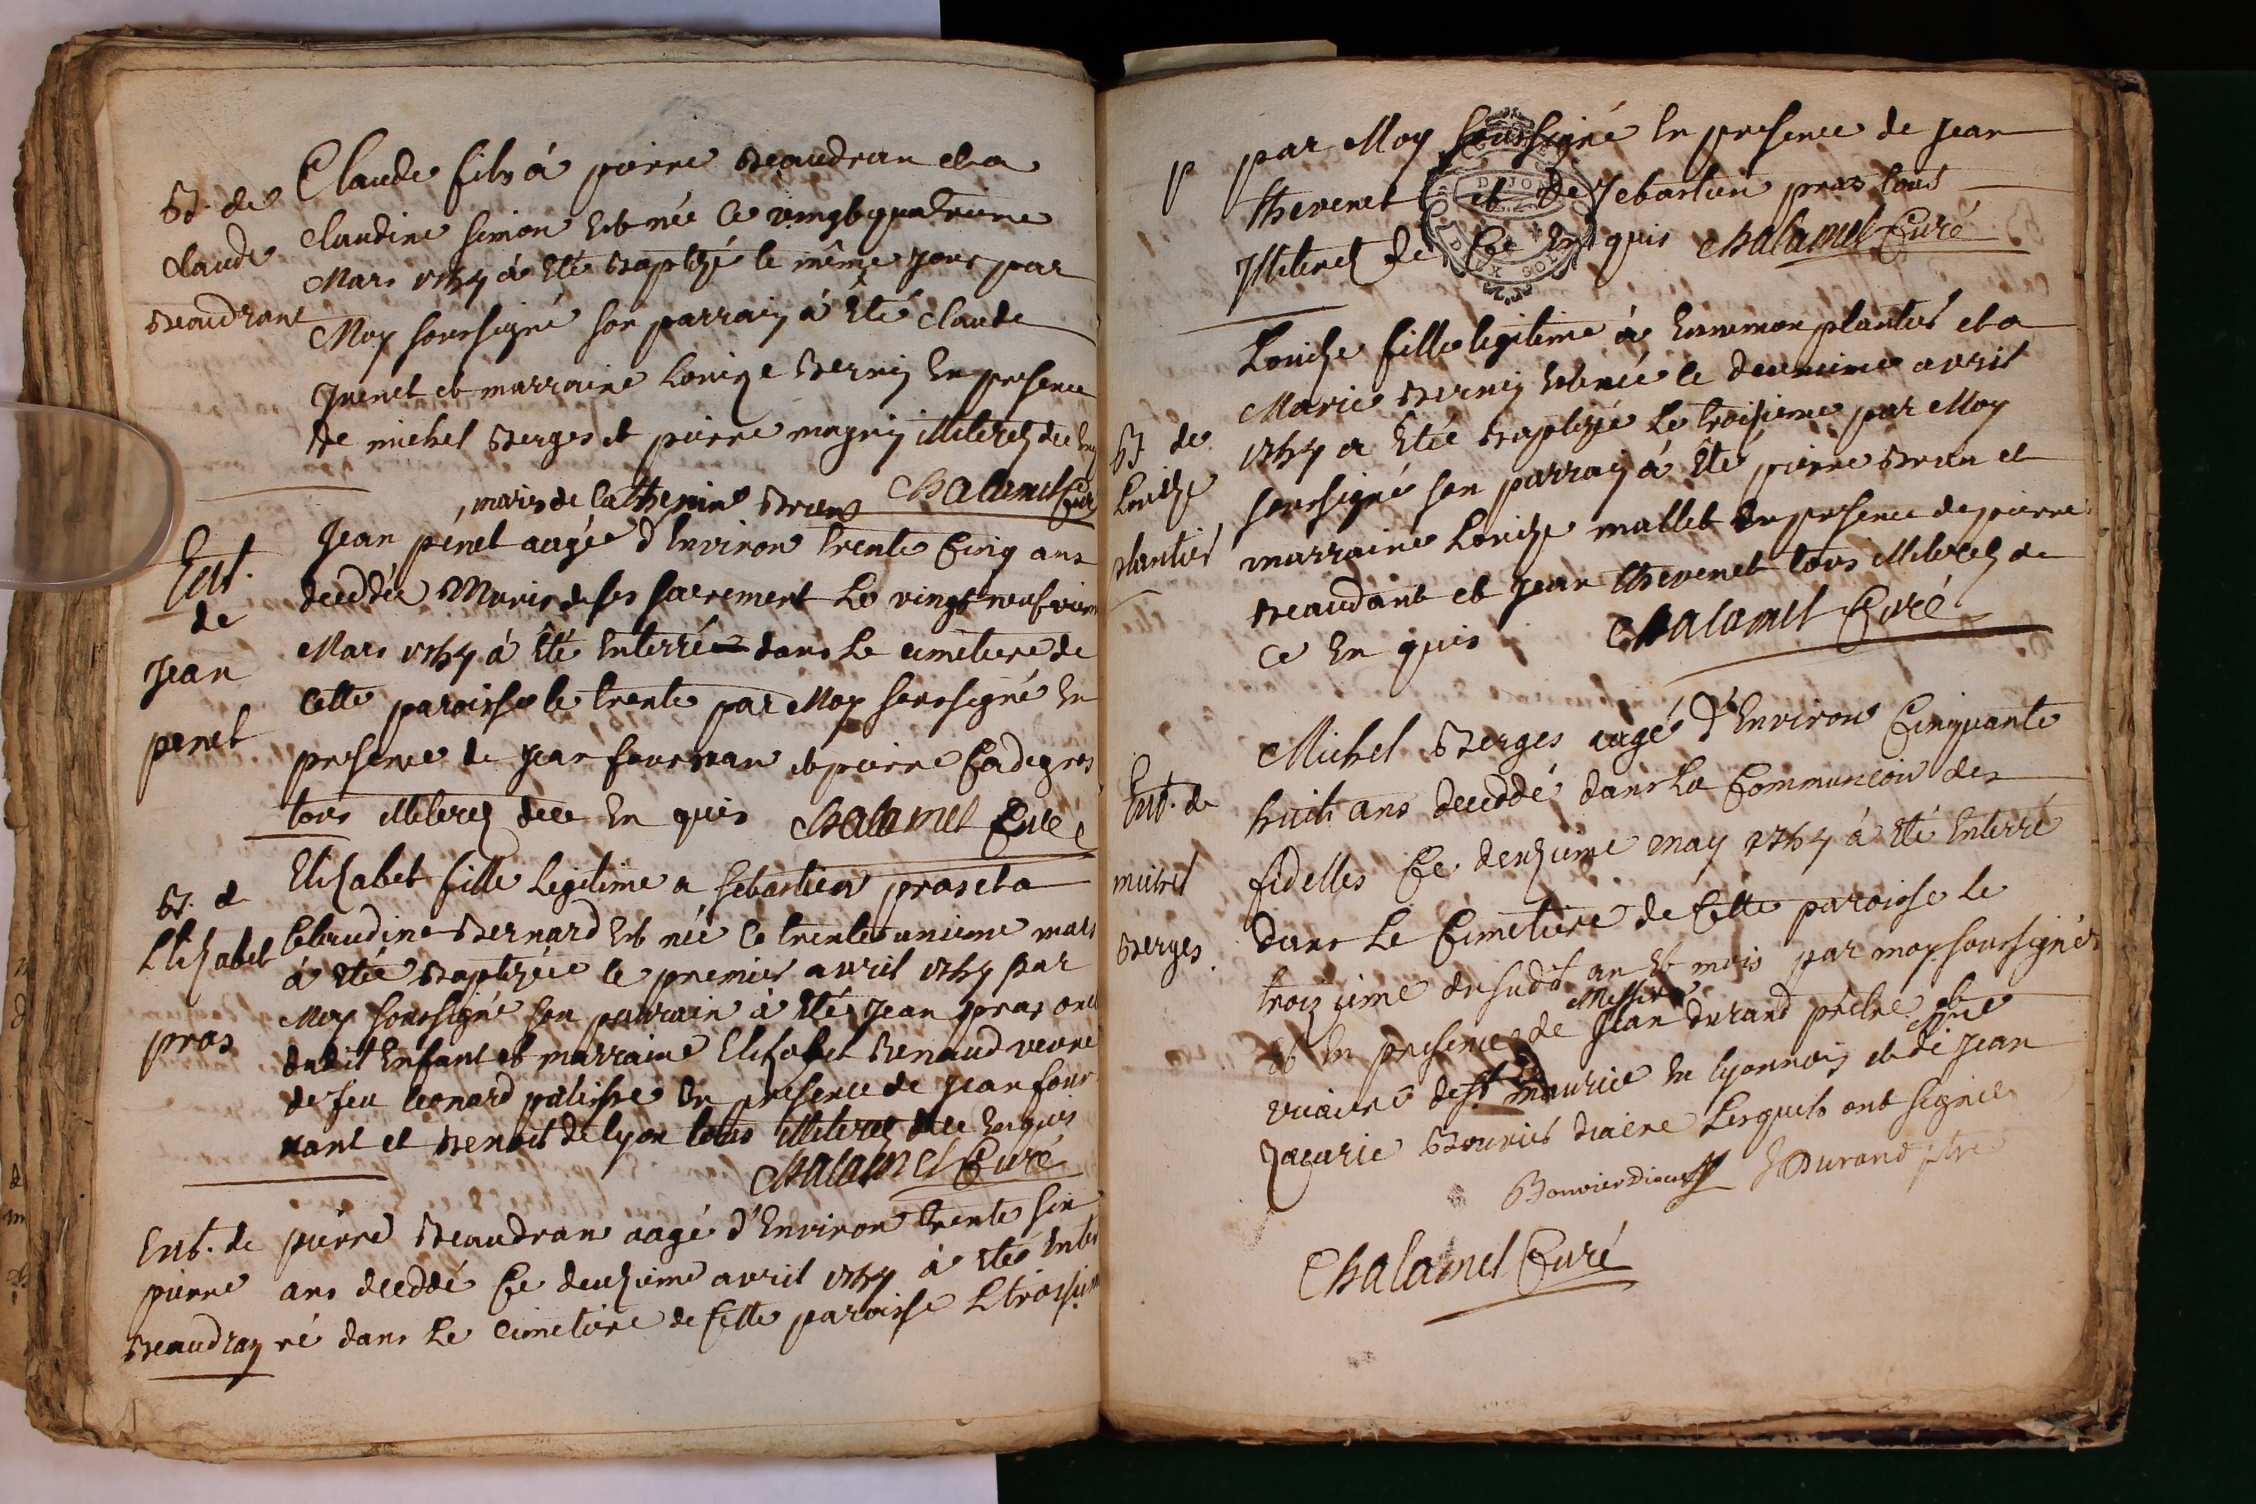 Bt. de
Claude
Beaudrant
Claude fils à pierre Beaudran et a
Claudine simon est née le vingt quatrieme
Mars 1764 à Eté Baptizé le même jour par
Moy soussigné son parrain à Eté Claude
et marraine Louize Bernin En presence
de michel Berges et pierre magnin illiterez de ce En
Chalamel Curé
Ent.
de
Jean
penet
, maris de Catherine Brun
Jean penet aagée d'Environ trente Cinq ans
deceddée Munis de ses sacrement Le vingt neufvieme
Mars 1764 à Eté Enterré dans Le cimetiere de
Cette paroisse le trente par Moy soussigné En
presence de Jean fournan et pierre Cadegros
tous illiterez de ce En quis Chalamel Curé
Bt. de
Elizabet
pros
Elizabet fille Legitime a sebastien pros et a
Claudine Bernard Est née Le trente unieme mars
à Etée Baptizée le premier avril 1764 par
Moy soussigné son parrain à Eté Jean pros oncle
dudit Enfant et marraine Elizabet Renaud veuve
de feu leonard palisse En presence de Jean four
nant et Benoit de lyon tous illiterez de ce Enquis
Chalamel Curé
Ent. de
pierre
Beaudran
pierre Beaudran aagé d'Environ trente six
ans deceddé Ce deuzieme avril 1764 à Eté Enter
ré dans Le cimetiere de Cette paroisse Le troisieme
par Moy soussigné En presence de Jean
thevenet et de Sebastien pros tous
illiterez de Ce En quis Chalamel Curé
Bt. de
Louize
plantier
Louize fille legitime à Ennemon plantier et a
Marie Bernin Est née le deuxieme avril
1764 a Etée Baptizée Le troisieme par Moy
soussigné son parrain à Eté pierre Brun et
marraine Louize mallet En presence de pierre
Beaudant et Jean thevenet tous illiterez de
ce En quis Chalamel Curé
Ent. de
michel
Berges
Michel Berges aagé d'Environ Cinquante
huit ans deceddé dans La Communion des
fidelles Ce deuzieme may 1764 à Eté Enterré
dans Le Cimetiere de Cette paroisse Le
troizieme du sudit an Et mois par moy soussigné
et En presence de Messire Jean durand prêtre et
vicaire de st maurice En lyonnois et de Jean
Zacarie Bouvier diacre Lesquels ont signé
Bouvier diacre JDurand ptre
Chalamel Curé